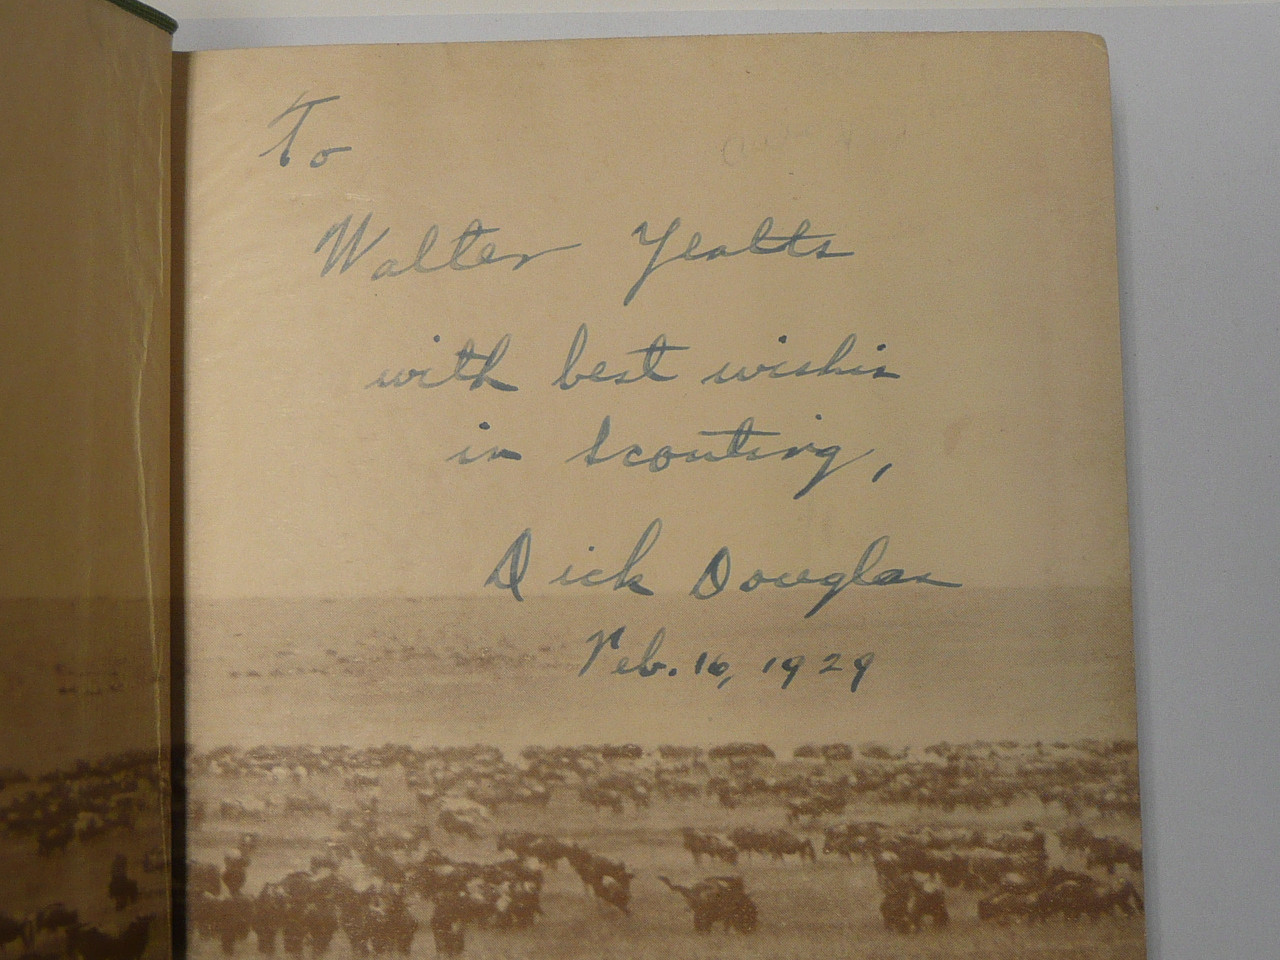 To
Walter Yeatts
with best wishes
in Scouting,
Dick Douglas
Feb. 16, 1929